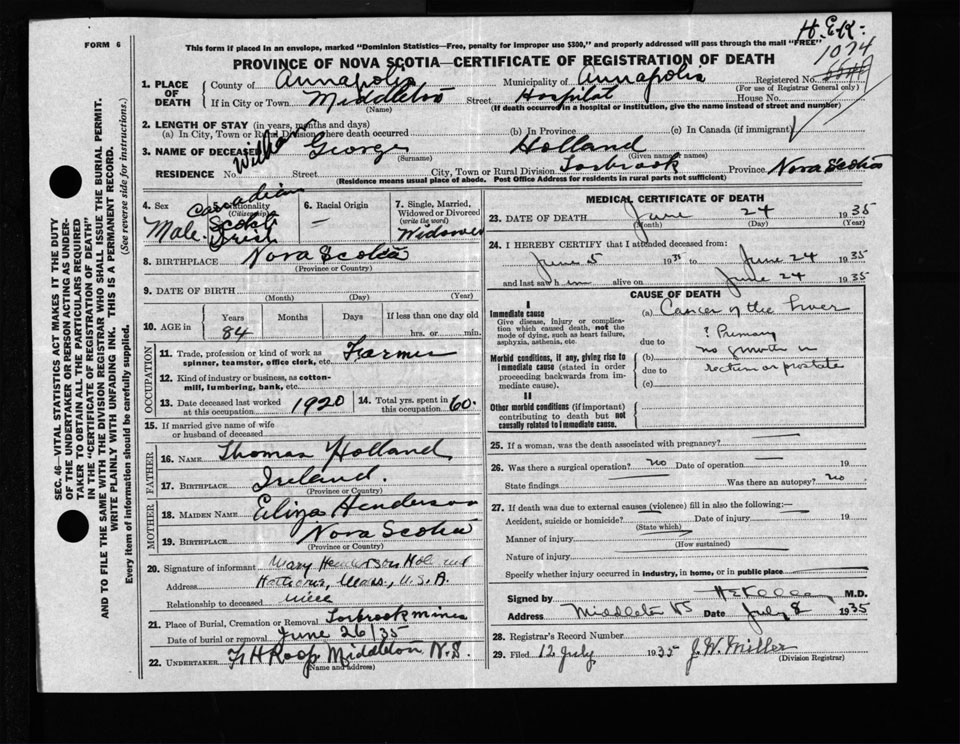 H.E.K.
FORM 6
This form if placed in an envelope, marked "Dominion Statistics—Free, penalty for improper use $300," and properly addressed will pass through the mail "FREE"
1074
PROVINCE OF NOVA SCOTIA—CERTIFICATE OF REGISTRATION OF DEATH
1. PLACE OF DEATH County of Annapolis Municipality of Annapolis Registered No.
(For use of Registrar General only)
If in City or Town Middleton Street Hospital House No.
(Name) (If death occurred in a hospital or institution, give the name instead of street and number)
2. LENGTH OF STAY (in years, months and days)
(a) In City, Town or Rural Division where death occurred (b) In Province (c) In Canada (if immigrant)
3. NAME OF DECEASED William George Holland
(Surname) (Given name or names)
RESIDENCE No. Street City, Town or Rural Division Torbrook Province Nova Scotia
(Residence means usual place of abode. Post Office Address for residents in rural parts not sufficient)
4. Sex Male
Nationality (Citizenship) Canadian
Scotch
Irish
6. Racial Origin —
7. Single, Married, Widowed or Divorced (write the word) Widowed
8. BIRTHPLACE Nova Scotia
(Province or Country)
9. DATE OF BIRTH
(Month) (Day) (Year)
10. AGE in Years Months Days If less than one day old
84 hrs. or min.
OCCUPATION
11. Trade, profession or kind of work as spinner, teamster, office clerk, etc. Farmer
12. Kind of industry or business, as cotton-mill, lumbering, bank, etc.
13. Date deceased last worked at this occupation 1920 14. Total yrs. spent in this occupation 60.
15. If married give name of wife or husband of deceased
FATHER
16. NAME Thomas Holland
17. BIRTHPLACE Ireland.
(Province or Country)
MOTHER
18. MAIDEN NAME Eliza Henderson
19. BIRTHPLACE Nova Scotia
(Province or Country)
20. Signature of informant Mary Henderson
Address Mass., U.S.A.
Relationship to deceased niece
21. Place of Burial, Cremation or Removal Torbrook mines
Date of burial or removal June 26/35
22. UNDERTAKER F H Roop Middleton N.S.
(Name and address)
MEDICAL CERTIFICATE OF DEATH
23. DATE OF DEATH June 24 1935
(Month) (Day) (Year)
24. I HEREBY CERTIFY that I attended deceased from:
June 5 1935 to June 24 1935
and last saw h im alive on June 24 1935
CAUSE OF DEATH
I
Immediate cause
Give disease, injury or complication which caused death, not the mode of dying, such as heart failure, asphyxia, asthenia, etc.
(a) Cancer of the Liver
due to ? Primary
Morbid conditions, if any, giving rise to Immediate cause (stated in order proceeding backwards from immediate cause).
(b) no growth in
due to rectum or prostate
(c)
II
Other morbid conditions (if important) contributing to death but not causally related to Immediate cause.
25. If a woman, was the death associated with pregnancy? —
26. Was there a surgical operation? no Date of operation — 19
State findings — Was there an autopsy? no
27. If death was due to external causes (violence) fill in also the following:—
Accident, suicide or homicide? Date of injury 19
(State which)
Manner of injury
(How sustained)
Nature of injury
Specify whether injury occurred in industry, in home, or in public place
Signed by H E Kelley M.D.
Address Middleton NS Date July 8 1935
28. Registrar's Record Number
29. Filed 12 July 1935 J. W. Miller
(Division Registrar)
SEC. 46—VITAL STATISTICS ACT MAKES IT THE DUTY
OF THE UNDERTAKER OR PERSON ACTING AS UNDER-
TAKER TO OBTAIN ALL THE PARTICULARS REQUIRED
IN THE "CERTIFICATE OF REGISTRATION OF DEATH"
AND TO FILE THE SAME WITH THE DIVISION REGISTRAR WHO SHALL ISSUE THE BURIAL PERMIT.
WRITE PLAINLY WITH UNFADING INK. THIS IS A PERMANENT RECORD.
Every item of information should be carefully supplied. (See reverse side for instructions.)